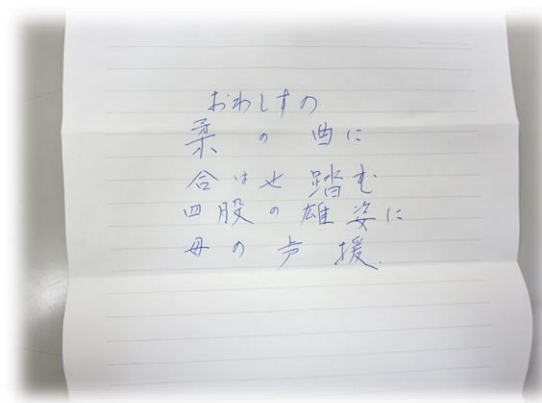 おわしすの
柔の曲に
合はせ踏む
四股の雄姿に
母の声援